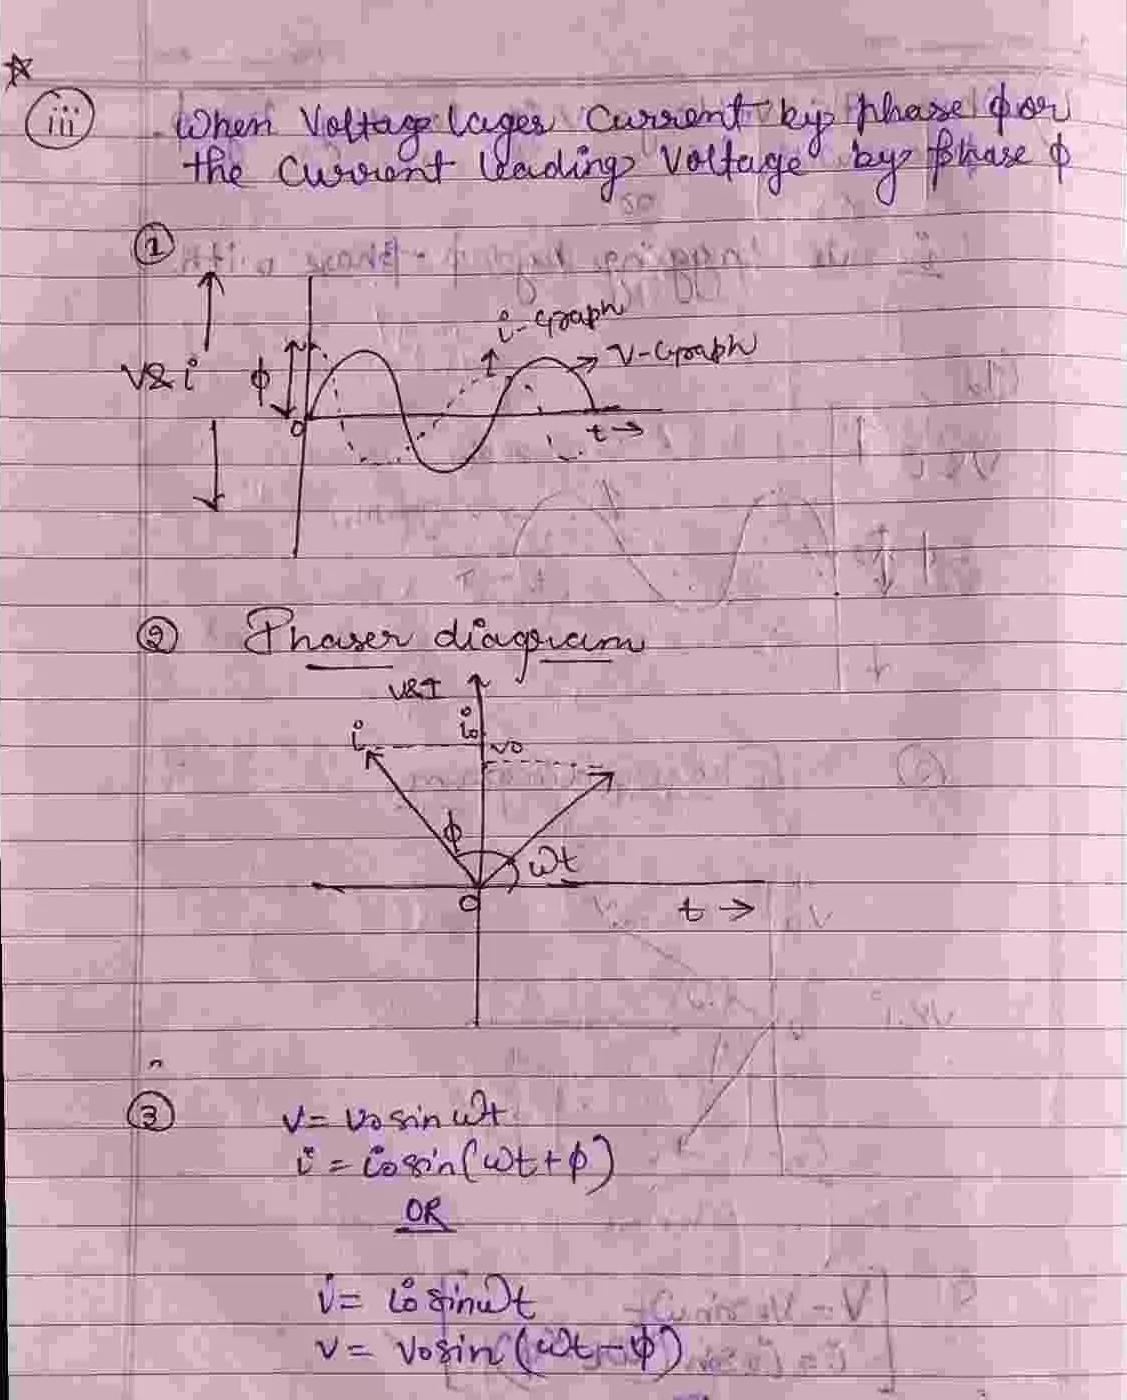 iii When Voltage lages Current by phase ϕ or
the Current leading Voltage by phase ϕ
1
i-Graph
V-Graph
V& i ϕ
0 t →
2 Phaser diagram
V&I
i i₀
v₀
ϕ
ωt
0 t →
3 V = V₀ sin ωt
i = i₀ sin(ωt + ϕ)
OR
i = i₀ sin ωt
V = V₀ sin (ωt - ϕ)